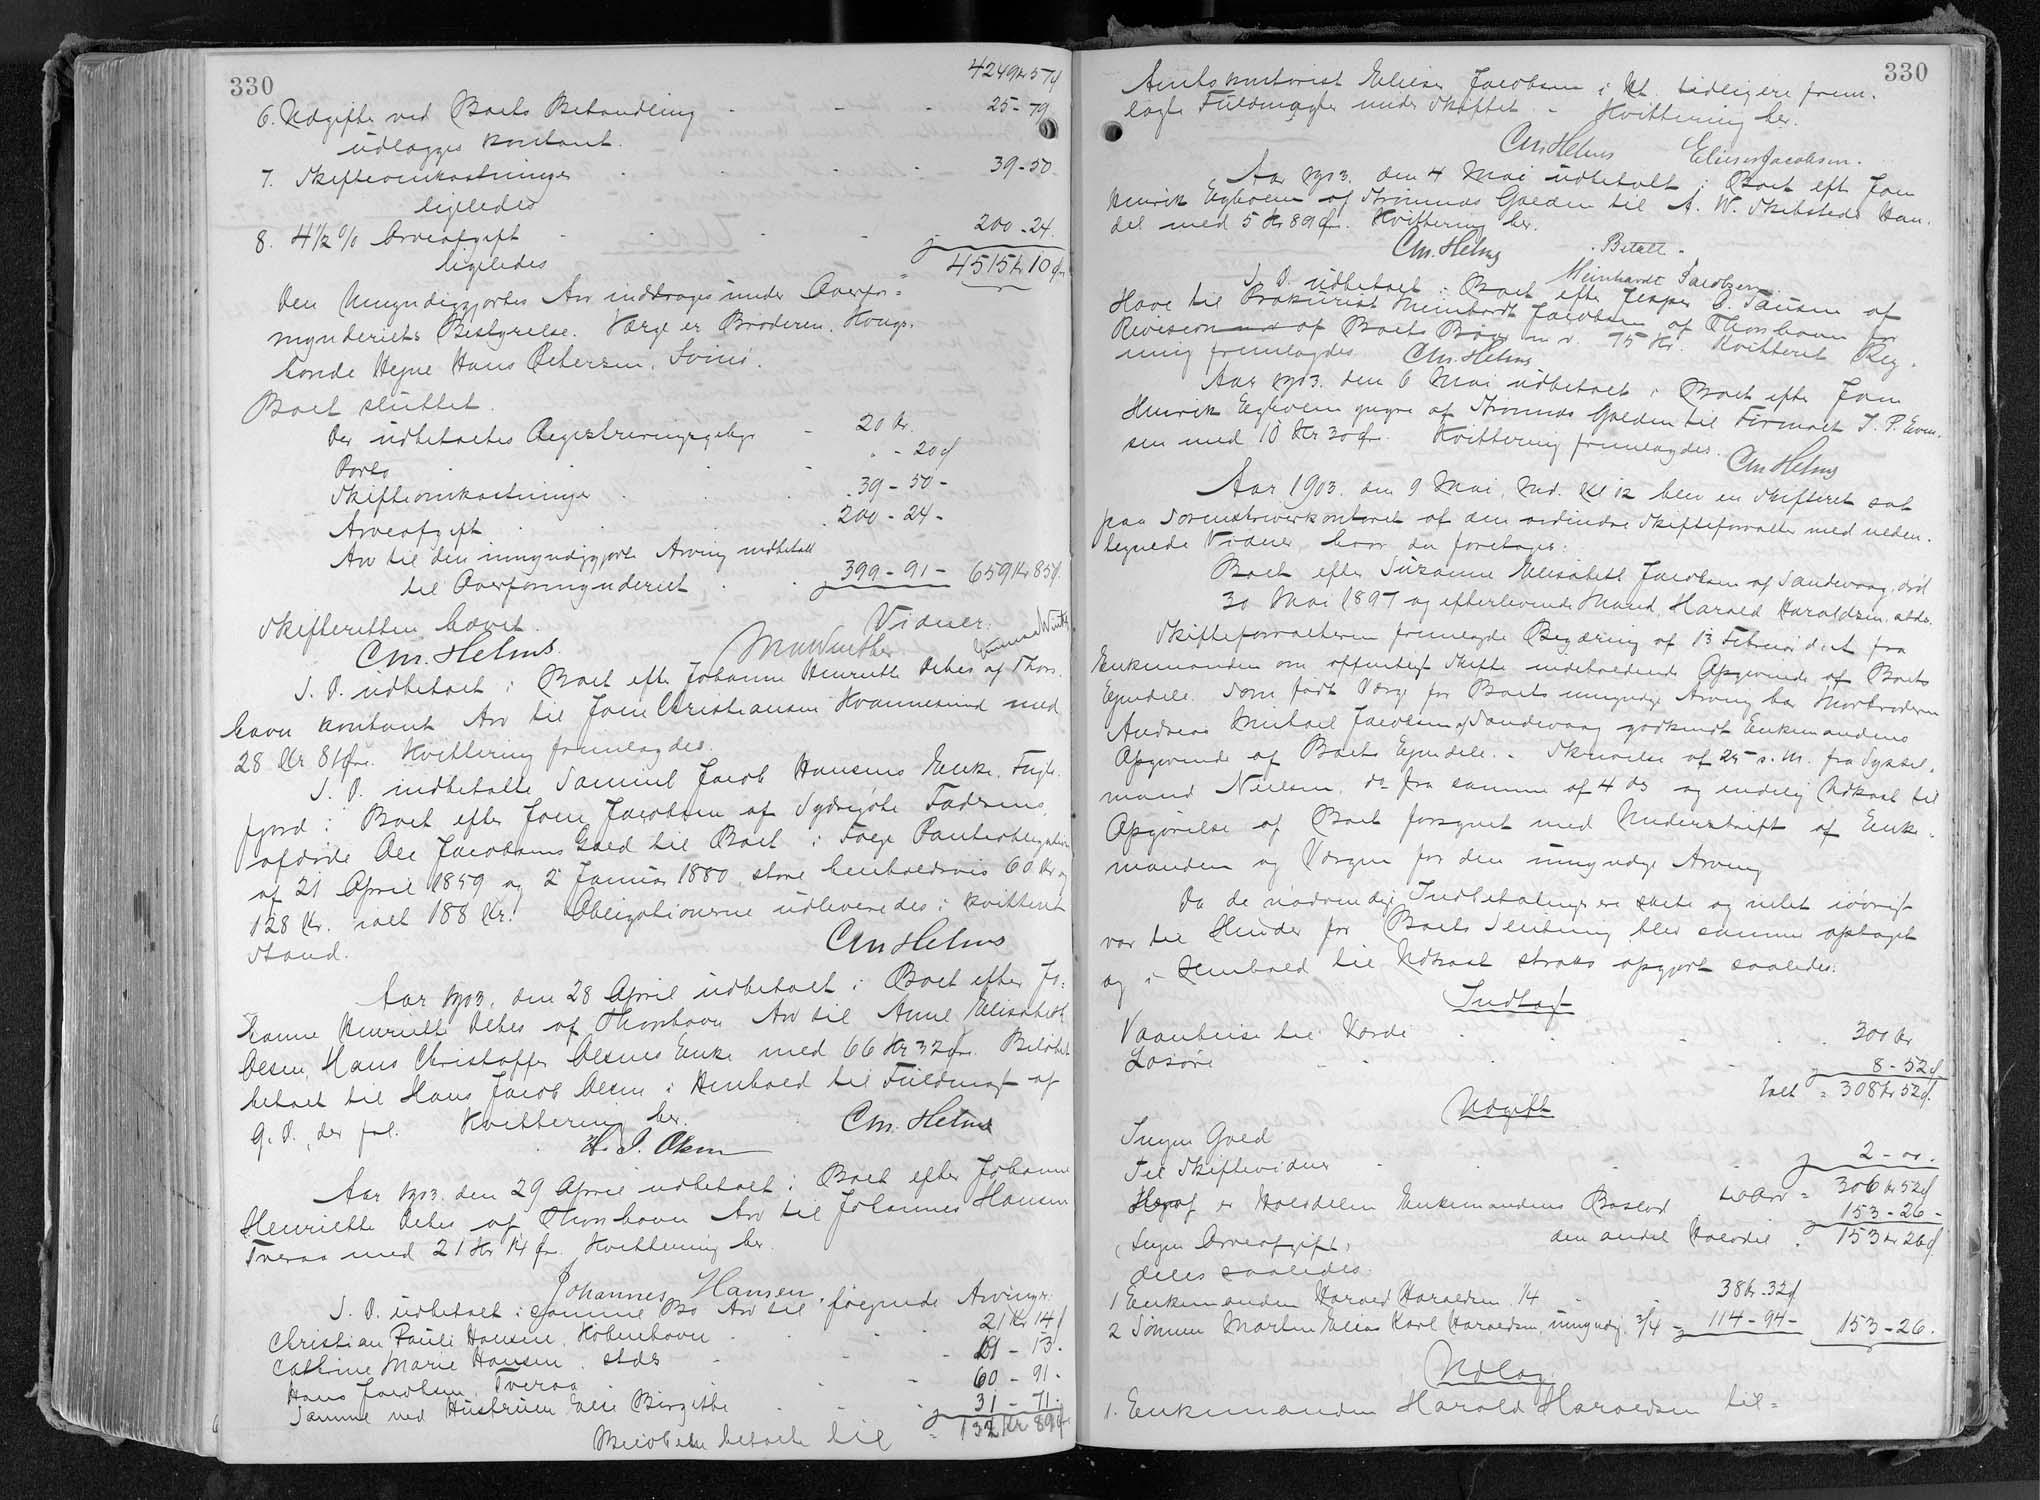 330
4249 Kr 57 Ø
6. Udgifter ved Boets Behandling - - - 25 - 79
udlægges kontant.
7. Skifteomkostninger 39 - 50
ligeledes
8. 4 1/2 % Arveafgift 200 - 24.
ligeledes 4515 Kr 10 Ø
Den Umyndiggjortes Arv inddrages under Overfor-
mynderiets Bestyrelse. Værge er Broderen, Kongs-
bonde Hejne Hans Petersen, Svinø.
Boet sluttet.
Der udbetaltes Registreringsgebyr - 20 Kr.
Porto " - 20 Ø
Skifteomkostninger 39 - 50 -
Arveafgift 200 - 24 -
Arv til den umyndiggjorte Arving indbetalt
til Overformynderiet 399 - 91 - 659 Kr 85 Ø
Skifteretten hævet.
Vidner:
C.M. Helms.
S. D. udbetalt i Boet efter Johanne Henriette Debes af Thors-
havn kontant Arv til Joen Christiansen Kvannesund med
28 Kr 81 Øre. Kvittering fremlagdes.
S. D. indbetalte Samuel Jacob Hansens Enke, Fugle-
fjord i Boet efter Joen Jacobsen af Sydregjøte Faderens,
afdøde Ole Jacobsens Gæld til Boet i Følge Panteobligation
af 21 April 1859 og 2 Januar 1880, store henholdsvis 60 Kr og
128 Kr. ialt 188 Kr. Obligationerne udleveredes i kvitteret
Stand.
C.M. Helms
Aar 1903, den 28 April udbetalt i Boet efter Jo-
hanne Henriette Debes af Thorshavn Arv til Anne Elisabeth
Olsen, Hans Christoffer Olsens Enke med 66 Kr 32 Øre. Beløbet
betalt til Hans Jacob Olsen i Henhold til Fuldmagt af
G. D. der fol. Kvittering her.
C.M. Helms
H. J. Olsen
Aar 1903. den 29 April udbetalt i Boet efter Johanne
Henriette Debes af Thorshavn Arv til Johannes Hansen
Tveraa med 21 Kr 14 Øre. Kvittering her.
Johannes Hansen.
S. D. udbetalt i samme Bo Arv til følgende Arvinger:
Christian Pauli Hansen, København 21 Kr 14 Ø
Cathrine Marie Hansen. stds - 13 -
Hans Jacobsen, Tveraa 60 - 91 -
Samme ved Hustruen Else Birgithe 31 - 71 -
Beløbene betalte til 132 Kr 89 Ø
330
Amtskontorist Elieser Jacobsen i Kt. tidligere frem-
lagte Fuldmagter under Skiftet. - Kvittering her.
C.M. Helms Elieser Jacobsen.
Aar 1903. den 4 Mai udbetalt i Boet eft. Joen
Henrik Eegholm af Strømnæs Gælden til A. W. Skibsteds Han-
del med 5 Kr 89 Øre. Kvittering her.
C.M. Helms - Betalt -
Meinhardt Jacobsen.
S. D. udbetalt i Boet efter Jesper O. Pausen af
Hove til Prokurist Meinhardt Jacobsen af Thorshavn for
Revision af Boets Bøger m. v. 75 Kr. Kvitteret Reg-
ning fremlagdes. C.M. Helms
Aar 1903. den 6 Mai udbetalt i Boet efter Joen
Henrik Eegholm yngre af Strømnæs Gælden til Firmaet J. P. Even-
sen med 10 Kr 30 Øre. Kvittering fremlagdes.
C.M. Helms
Aar 1903. den 9 Mai, Md. Kl 12 blev en Skifteret sat
paa Sorenskriverkontoret af den ordinære Skifteforvalter med neden-
tegnede Vidner, hvor da foretages:
Boet efter Susanne Elisabeth Jacobsen af Sandevaag, død
30 Mai 1897 og efterlevende Mand, Harald Haraldsen, stds.
Skifteforvalteren fremlagde Begæring af 13 Februar d. A. fra
Enkemanden om offentligt Skifte indeholdende Opgivende af Boets
Ejendele. Som født Værge for Boets umyndige Arving har Morbroderen
Andreas Michael Jacobsen af Sandevaag godkendt Enkemandens
Opgivende af Boets Ejendele. - Skrivelse af 25 s. M. fra Syssel-
mand Nielsen, do fra samme af 4 ds og endelig Udkast til
Opgørelse af Boet forsynet med Underskrift af Enke-
manden og Værgen for den umyndige Arving
Da de nødvendige Indbetalinger ere skete og intet iøvrigt
var til Hinder for Boets Slutning, blev samme optaget
og i Henhold til Udkast straks opgjort saaledes:
Indtægt
Vaaningshus til Værdi 300 Kr
Løsøre 8 - 52 Ø
Ialt = 308 Kr 52 Ø
Udgift
Ingen Gæld
Til Skiftevidner 2 - 00 -
til Arv = 306 Kr 52 Ø
Heraf er Halvdelen Enkemandens Boslod 153 - 26 -
(Ingen Arveafgift) den anden Halvdel 153 Kr 26 Ø
deles saaledes
1 Enkemanden Harald Haraldsen 1/4 38 Kr. 32 Ø
2 Sønnen Martin Elias Karl Haraldsen, umyndig 3/4 114 - 94 - 153 - 26.
Udlæg
1. Enkemanden Harald Haraldsen til =